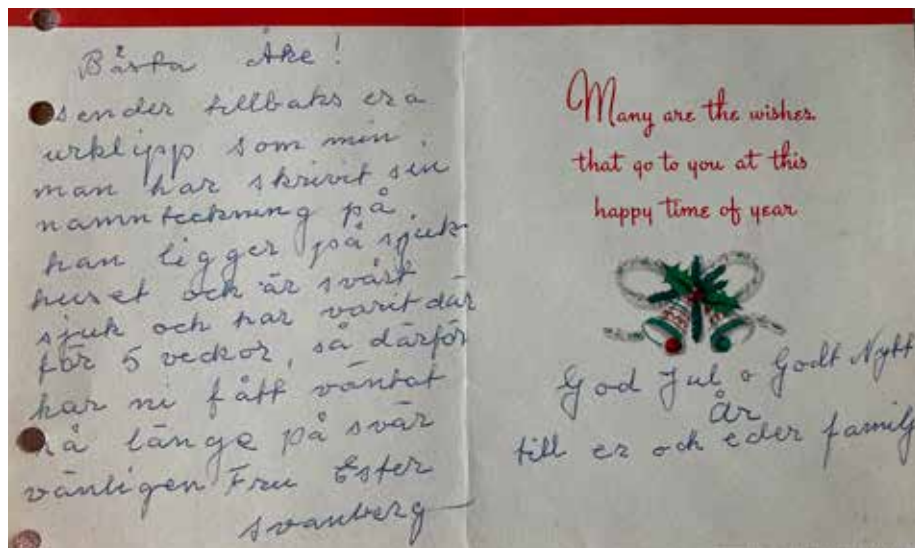 Bästa Åke!
sender tillbaks era
urklipp som min
man har skrivit sin
namnteckning på
han ligger på sjuk
huset och är svårt
sjuk och har varit där
för 5 veckor, så därför
har ni fått väntat
så länge på svar
vänligen Fru Ester
Svanberg
Many are the wishes
that go to you at this
happy time of year
God Jul o Godt Nytt
År
till er och eder familj